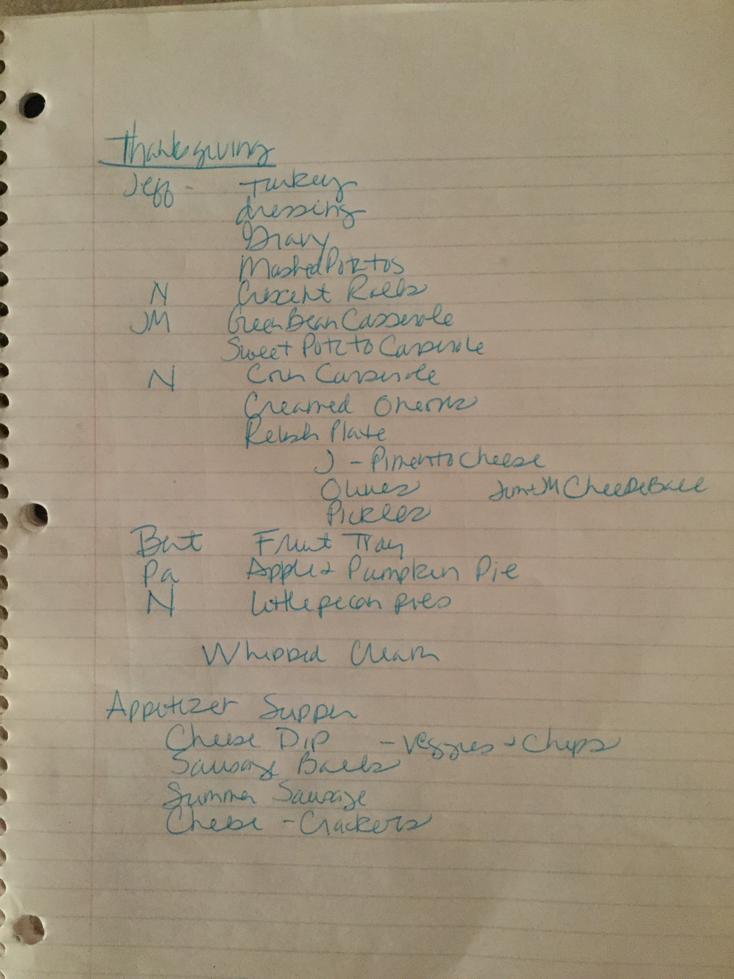 Thanksgiving
Jeff - Turkey
dressing
Gravy
Mashed Pototos
N Crescent Rolls
JM Green Bean Casserole
Sweet Potato Casserole
N Corn Casserole
Creamed Onions
Relish Plate
J - Pimento Cheese
Olives June M Cheese Ball
Pickles
Fruit Tray
Pa Apple & Pumpkin Pie
N Little pecan pies
Whipped Cream
Appetizer Supper
Cheese Dip - Veggies & Chips
Sausage Balls
Summer Sausage
Cheese - Crackers